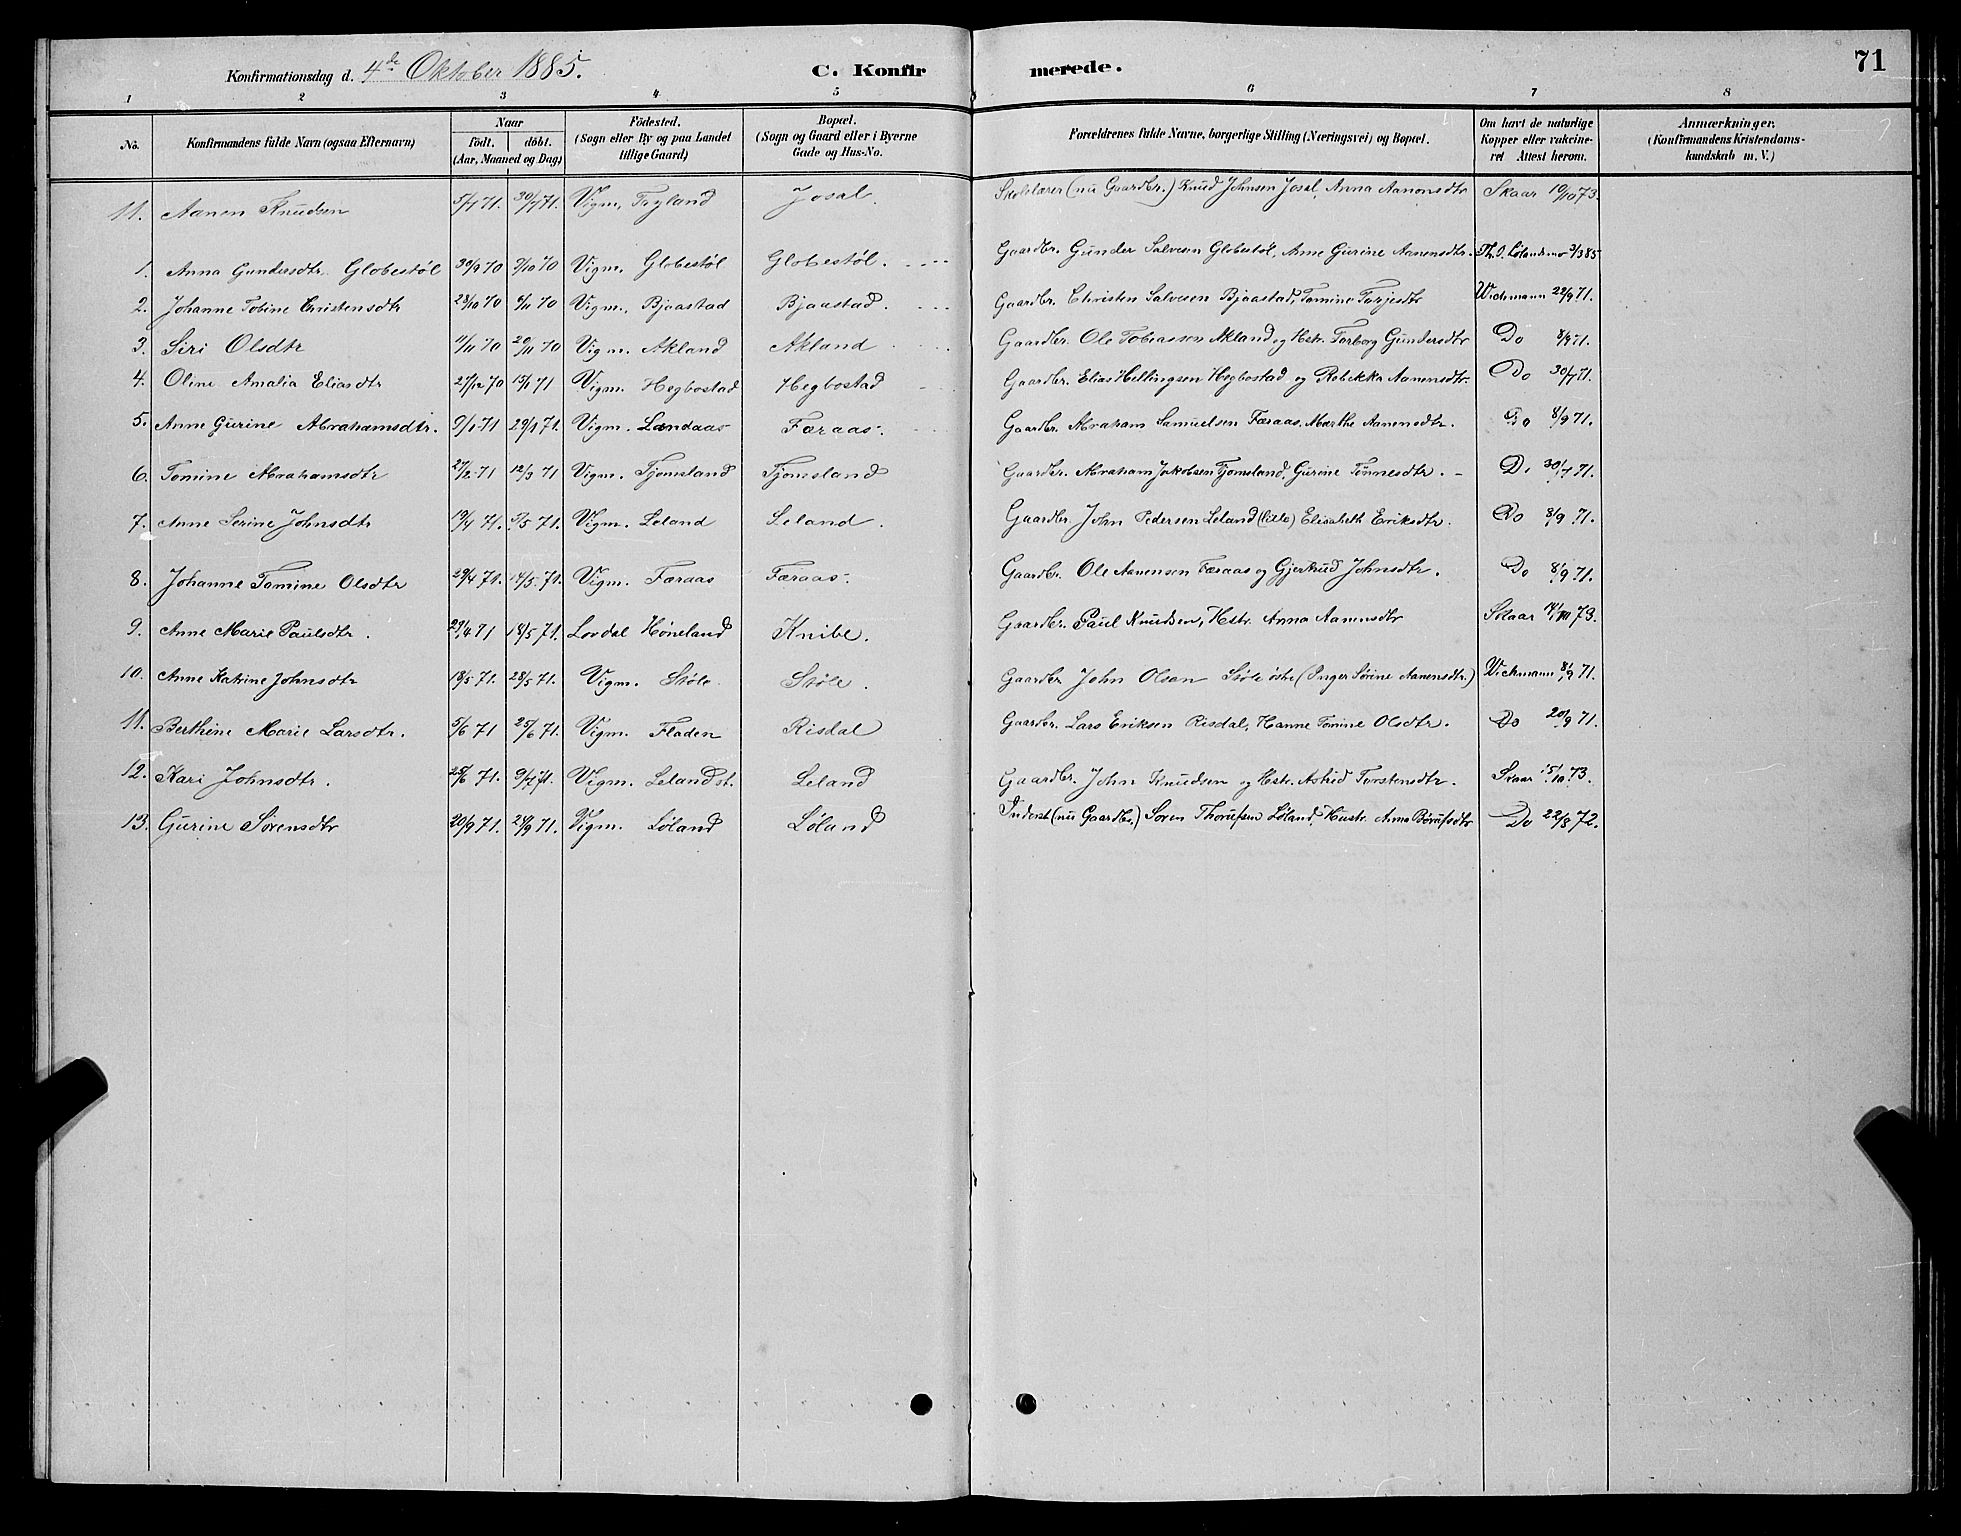 Konfirmationsdag d. 4de Oktober 1885. C. Konfirmerede. 71
1 2 3 4 5 6 7 8
No. Konfirmandens fulde Navn (ogsaa Efternavn) Naar født, døbt. (Aar, Maaned og Dag) Fødested. (Sogn eller By og paa Landet tillige Gaard) Bopæl. (Sogn og Gaard eller i Byerne Gade og Hus-No. Forældrenes fulde Navne, borgerlige Stilling (Næringsvei) og Bopæl. Om havt de naturlige Kopper eller vakcineret Attest herom. Anmærkninger. (Konfirmandens Kristendomskundskab m. V.)
11. Aanen Knudsen 5/1 71. 30/4 71. Vigm. Tryland Josal. Skolelærer (nu Gaardbr.) Knud Johnsen Josal, Anna Aanonsdtr Skaar 10/10 73.
1. Anna Gundersdtr Globestøl 30/9 70 9/10 70 Vigm. Globestøl Globestøl. Gaardbr. Gunder Salvesen Globestøl, Anne Gurine Aanensdtr. Th. O. Lølandsmo 3/3 85
2. Johanne Tobine Christensdtr 23/10 70 6/11 70 Vigm. Bjaastad Bjaastad. Gaardbr. Christen Salvesen Bjaastad, Tomine Torjesdtr Wichmann 22/9 71.
3. Siri Olsdtr 11/11 70 20/11 70 Vigm. Akland Akland Gaardbr. Ole Tobiassen Akland og Hstr. Torborg Gundersdtr Do 8/9 71.
4. Oline Amalia Eliasdtr 27/12 70 15/1 71 Vigm. Hegbostad Hegbostad Gaardbr. Elias Hellingsen Hegbostad og Rebekka Aanensdtr. Do 30/7 71.
5. Anne Gurine Abrahamsdtr. 9/1 71 29/1 71. Vigm. Landaas Færaas. Gaardbr. Abraham Samuelsen Færaas, Marthe Aanensdtr. Do 8/9 71.
6. Tomine Abrahamsdtr 27/2 71 12/3 71 Vigm. Tjomsland Tjomsland Gaardbr. Abraham Jakobsen Tjomsland, Gurine Tønnesdtr. Do 30/7 71.
7. Anne Serine Johnsdtr 19/4 71. 7/5 71. Vigm. Leland Leland. Gaardbr John Pedersen Leland (lille) Elisabeth Eriksdtr. Do 8/9 71.
8. Johanne Tomine Olsdtr 29/4 71. 14/5 71. Vigm. Færaas Færaas. Gaardbr. Ole Aanensen Færaas og Gjertrud Johnsdtr. Do 8/9 71.
9. Anne Marie Paulsdtr. 29/4 71 18/5 71. Lovdal Høneland Knibe. Gaardbr. Paul Knudsen, Hstr. Anna Aanensdtr Skaar 14/10 73.
10. Anne Katrine Johnsdtr 18/5 71. 28/5 71. Vigm. Støle Støle. Gaardbr John Olsen Støle østre (Inger Sørine Aanensdtr.) Wichmann 8/9 71.
11. Berthine Marie Larsdtr. 5/6 71 25/6 71. Vigm. Fladen Risdal Gaardbr. Lars Eriksen Risdal, Hanne Tomine Olsdtr. Do 20/9 71.
12. Kari Johnsdtr. 25/6 71. 9/7 71. Vigm. Leland st. Leland Gaardbr. John Knudsen og Hstr. Astrid Torstensdtr. Skaar 15/10 73.
13. Gurine Sørensdtr 20/9 71. 24/9 71. Vigm. Løland Løland Inderst (nu Gaardbr.) Søren Thorufsen Løland, Hustr. Anna Børufsdtr Do 22/8 72.